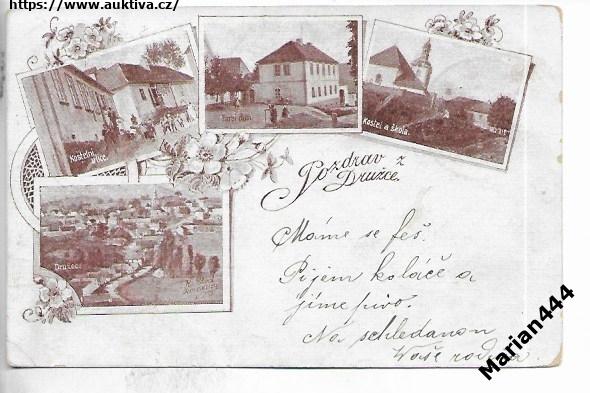 https://www.auktiva.cz/
Kostelní ulice
Farní dům
Kostel a škola.
Pozdrav z
Družce.
Družec
Máme se feš.
Pijem koláče a
jíme pivo.
Na schledanou
Vaše rodina.
Marian444